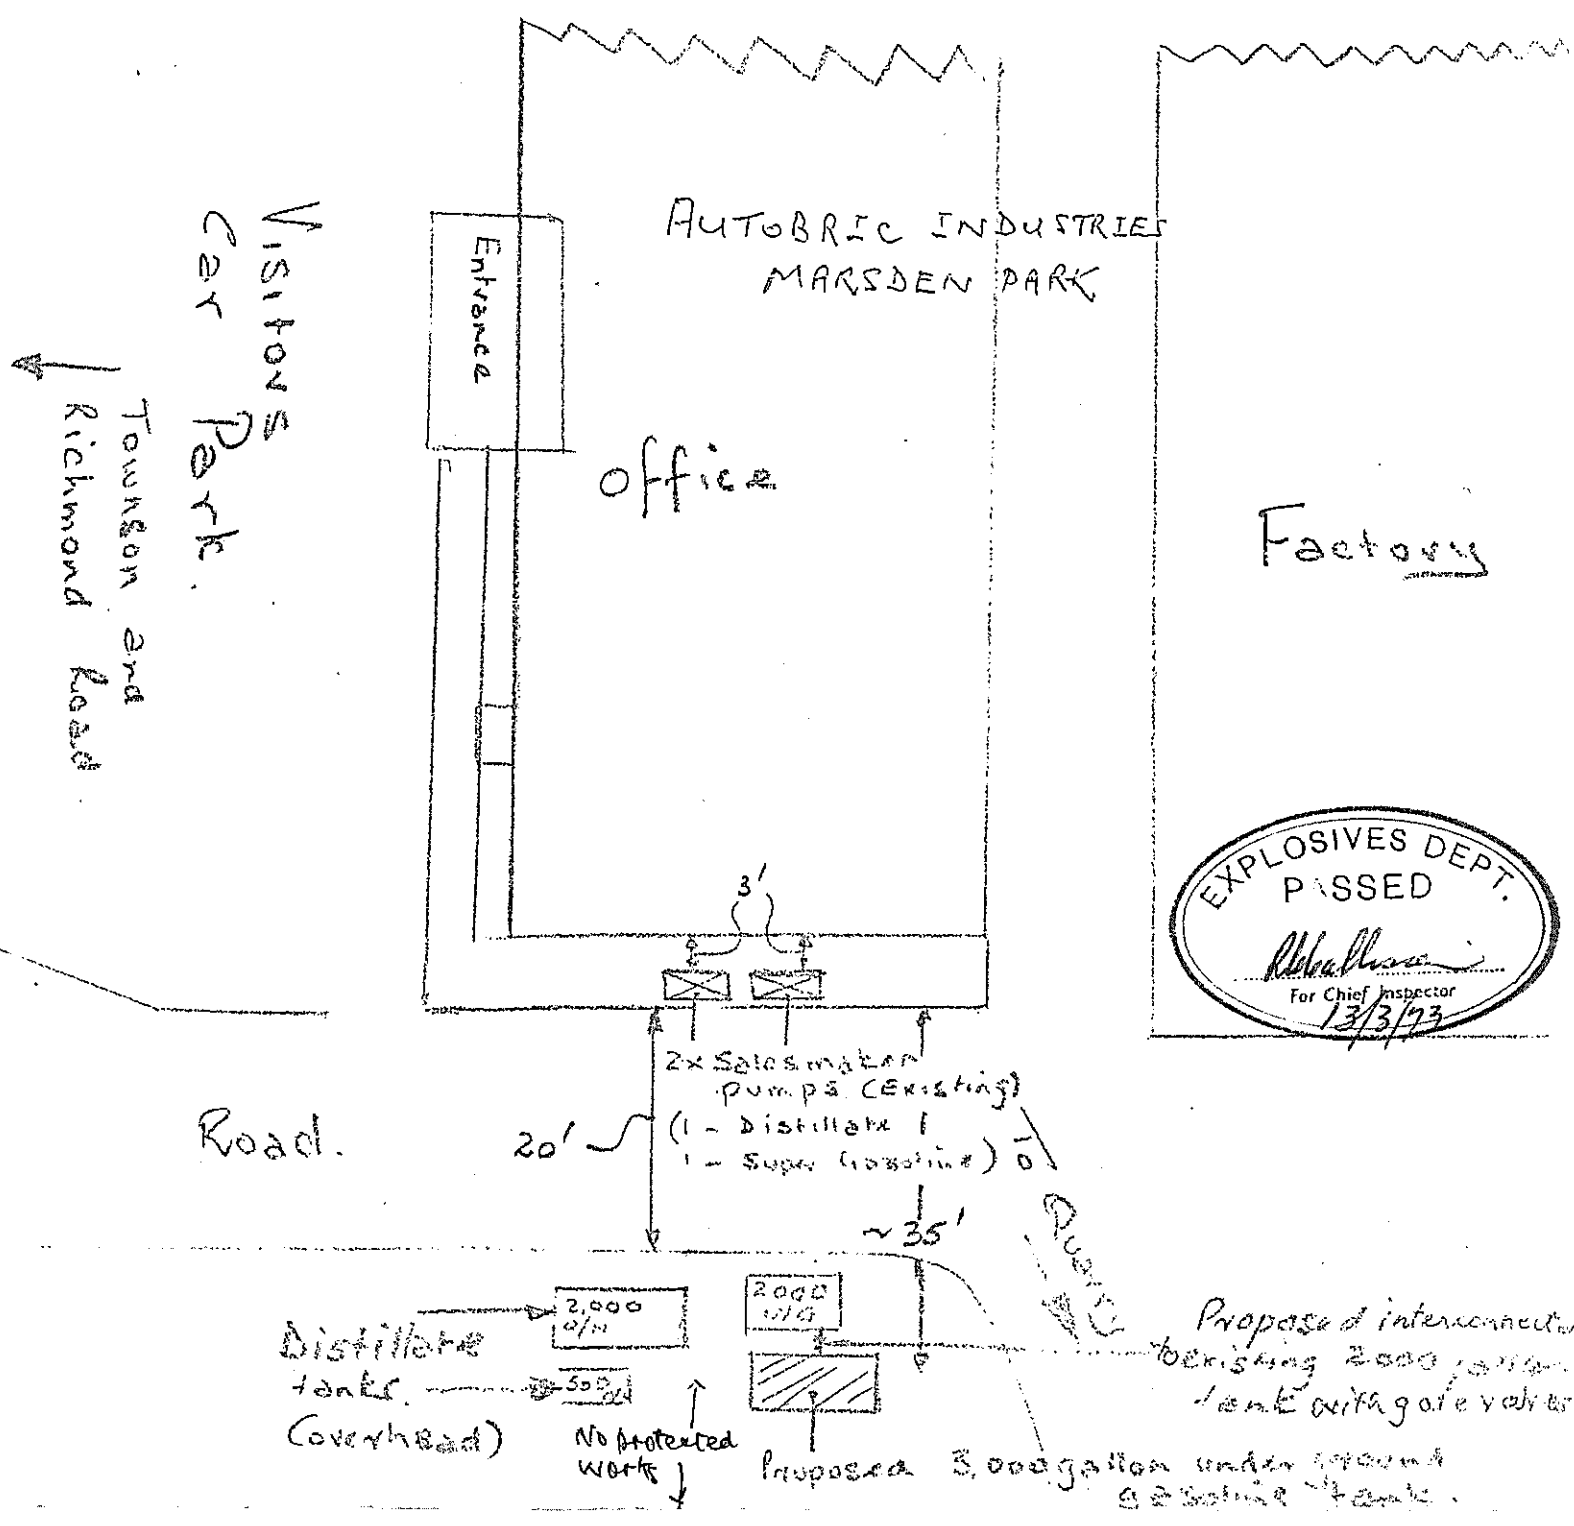 AUTOBRIC INDUSTRIES
MARSDEN PARK
Visitors
Car Park.
Townson and
Richmond Road
Entrance
Office
Factory
EXPLOSIVES DEPT.
PASSED
For Chief Inspector
13/3/73
3'
2x Salesmaker
pumps (Existing)
(1 - Distillate
1 - Super Gasoline)
20'
Road.
~ 35'
To
Quarry
2,000
O/H
2000
U/G
500
Distillate
tanks
(overhead)
No protected
works
Proposed interconnection
to existing 2000 gallon
tank with gate valves
Proposed 3,000 gallon under ground
gasoline tank.